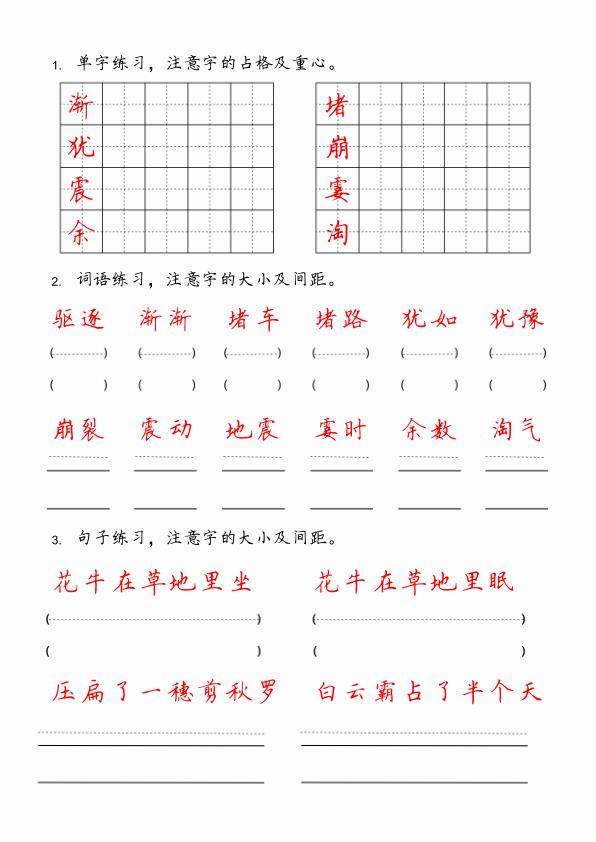 1. 单字练习，注意字的占格及重心。
渐 堵
犹 崩
震 霎
余 淘
2. 词语练习，注意字的大小及间距。
驱逐 渐渐 堵车 堵路 犹如 犹豫
( ) ( ) ( ) ( ) ( ) ( )
( ) ( ) ( ) ( ) ( ) ( )
崩裂 震动 地震 霎时 余数 淘气
3. 句子练习，注意字的大小及间距。
花牛在草地里坐 花牛在草地里眠
( ) ( )
( ) ( )
压扁了一穗剪秋罗 白云霸占了半个天